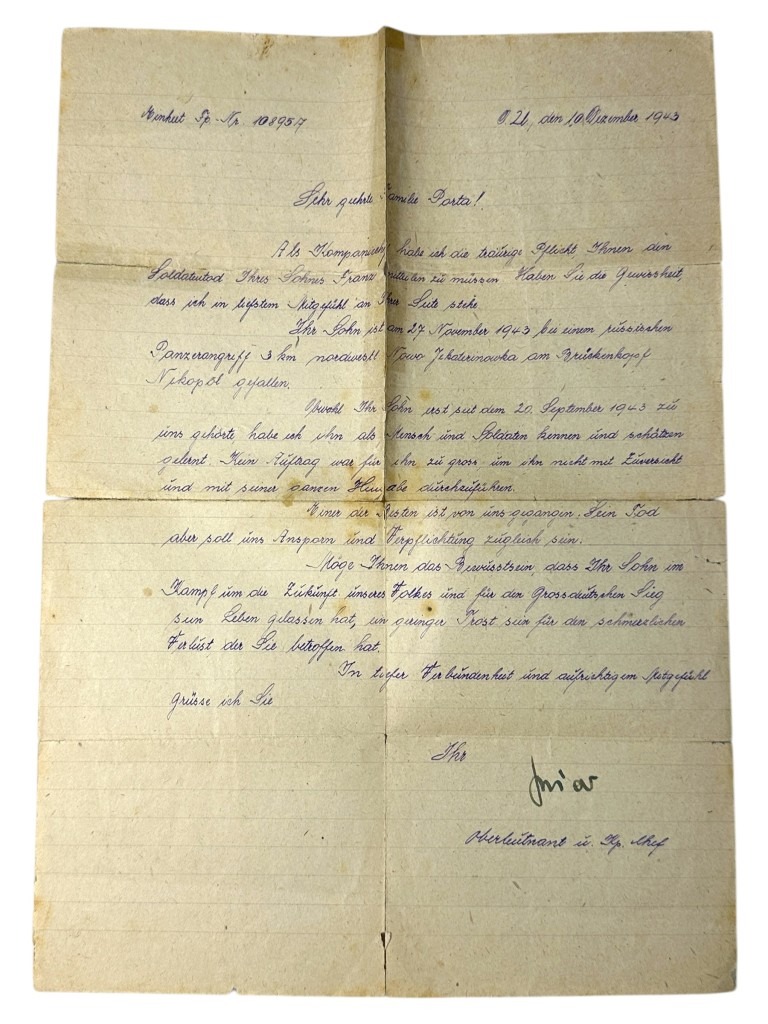 Einheit Fp.-Nr. 10895/7
O.U., den 10. Dezember 1943
Sehr geehrte Familie Porta!
Als Kompaniechef habe ich die traurige Pflicht Ihnen den
Soldatentod Ihres Sohnes Franz mitteilen zu müssen. Haben Sie die Gewissheit,
dass ich in tiefstem Mitgefühl an Ihrer Seite stehe.
Ihr Sohn ist am 27. November 1943 bei einem russischen
Panzerangriff 3 km nordwestl. Nowo Jekaterinowka am Brückenkopf
Nikopol gefallen.
Obwohl Ihr Sohn erst seit dem 20. September 1943 zu
uns gehörte habe ich ihn als Mensch und Soldaten kennen und schätzen
gelernt. Kein Auftrag war für ihn zu gross um ihn nicht mit Zuversicht
und mit seiner ganzen Hingabe durchzuführen.
Einer der Besten ist von uns gegangen. Sein Tod
aber soll uns Ansporn und Verpflichtung zugleich sein.
Möge Ihnen das Bewusstsein dass Ihr Sohn im
Kampf um die Zukunft unseres Volkes und für den Grossdeutschen Sieg
sein Leben gelassen hat, ein geringer Trost sein für den schmerzlichen
Verlust der Sie betroffen hat.
In tiefer Verbundenheit und aufrichtigem Mitgefühl
grüsse ich Sie
Ihr
Oberleutnant u. Kp. Chef